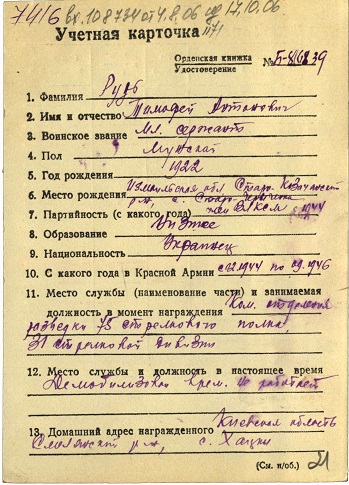 7416 вх. 108734 от 4.8.06 17.10.06
Учетная карточка
Орденская книжка
Удостоверение № Б-816839
1. Фамилия Рудь
2. Имя и отчество Тимофей Антонович
3. Воинское звание Мл. сержант
4. Пол Мужской
5. Год рождения 1922
6. Место рождения Измаильская обл Старо-Казачанский
р-н, с. Старо-
7. Партийность (с какого года) член ВЛКСМ с 1944
8. Образование Низшее
9. Национальность Украинец
10. С какого года в Красной Армии с 1944 по 1946
11. Место службы (наименование части) и занимаемая
должность в момент награждения Ком. отделения
разведки 75 стрелкового полка
31 стрелковой дивизии
12. Место службы и должность в настоящее время
Демобилизован врем. не работает
13. Домашний адрес награжденного Киевская область
Смелянский р-н, с. Хацки
(См. н/об.) 21